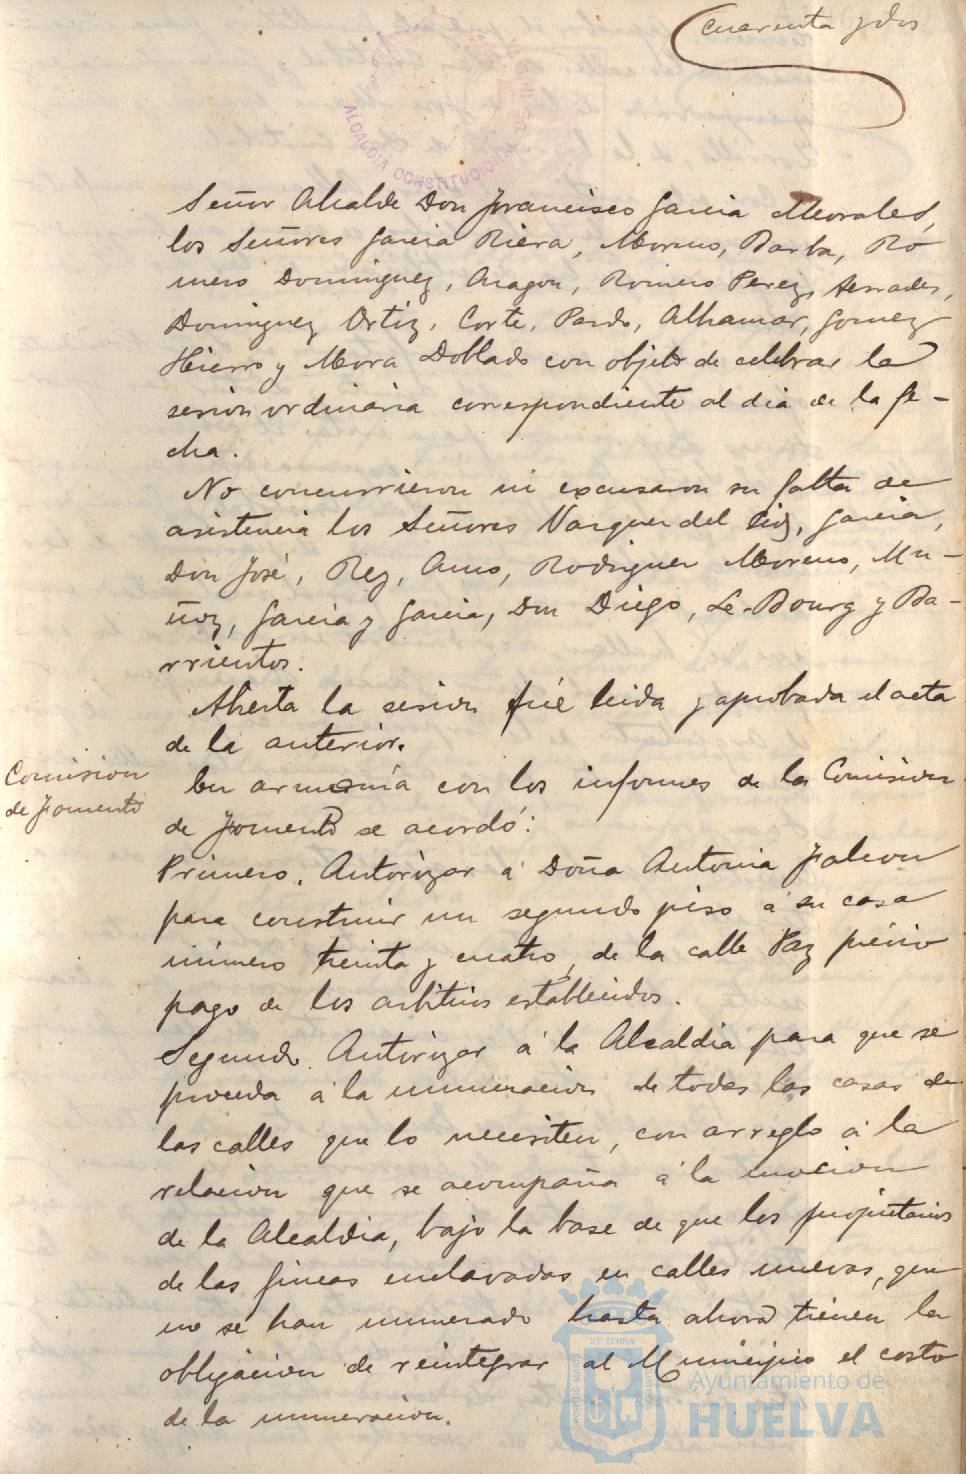 cuarenta y dos
ALCALDIA CONSTITUCIONAL DE
Señor Alcalde Don Francisco Garcia Morales,
los Señores Garcia Riera, Moreno, Barba, Ro
mero Dominguez, Aragon, Romero Perez, Serrades,
Dominguez Ortiz, Corte, Pardo, Alhamar, Gomez
Hierro y Mora Doblado con objeto de celebrar la
sesion ordinaria correspondiente al dia de la fe-
cha.
No concurrieron ni excusaron su falta de
asistencia los Señores Vazquez del Cid, Garcia,
Don José, Rey, Amo, Rodriguez Moreno, Mu-
ñoz, Garcia y Garcia, Don Diego, Le-Bourg y Ba-
rrientos.
Abierta la sesion fué leida y aprobada el acta
de la anterior.
Comision
de Fomento
En armonía con los informes de la Comision
de Fomento se acordó:
Primero. Autorizar á Doña Antonia Falcon
para construir un segundo piso á su casa
número treinta y cuatro, de la calle Paz prévio
pago de los arbitrios establecidos.
Segundo. Autorizar á la Alcaldia para que se
proceda á la numeracion de todas las casas de
las calles que lo necesiten, con arreglo á la
relacion que se acompaña á la mocion
de la Alcaldia, bajo la base de que los propietarios
de las fincas enclavadas en calles nuevas, que
no se han numerado hasta ahora tienen la
obligacion de reintegrar al Municipio el costo
de la numeracion.
ET TERRÆ
PORTUS MARIS
CUSTODIA
Ayuntamiento de
HUELVA